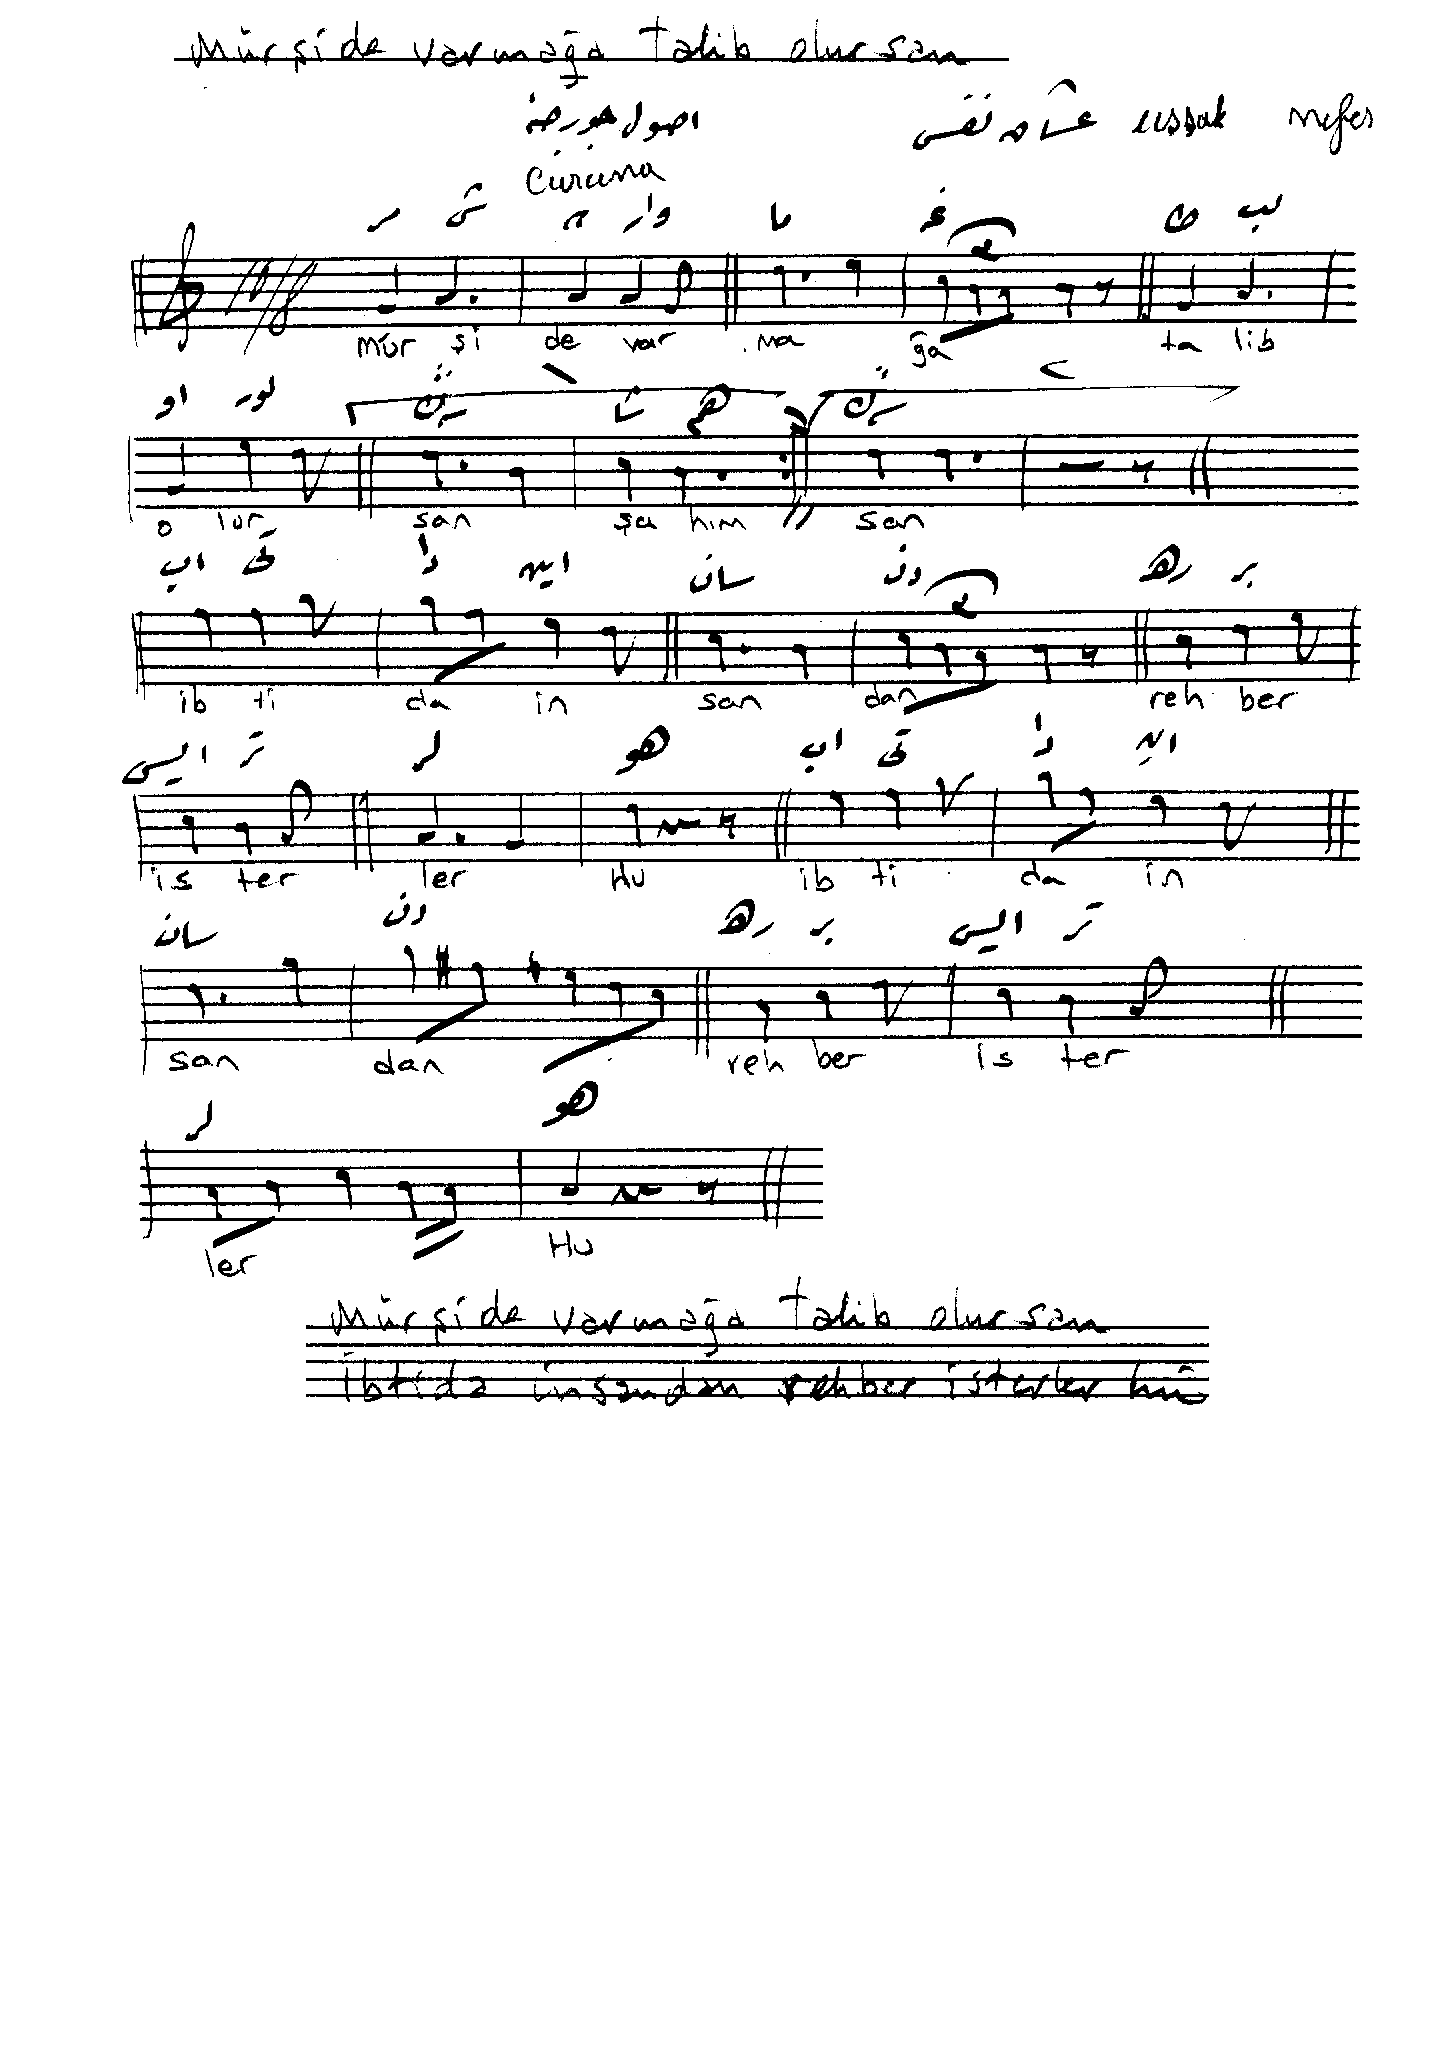 Mürşide varmağa talib olursan
اصول جورجنه uşşak nefes
Curcuna
ر شى ده وار ما غه طا لب
mür şi de var ma ğa ta lib
او لور سڭ شا هم سڭ
o lur san şa him san
اب تدا اين سان دن ره بر
ib ti da in san dan reh ber
ايس تر لر هو اب تى دا اين
is ter ler Hu ib ti da in
سان دن ره بر ايس تر
san dan reh ber is ter
لر هو
ler Hu
Mürşide varmağa talib olursan
İbtida insandan rehber isterler hü